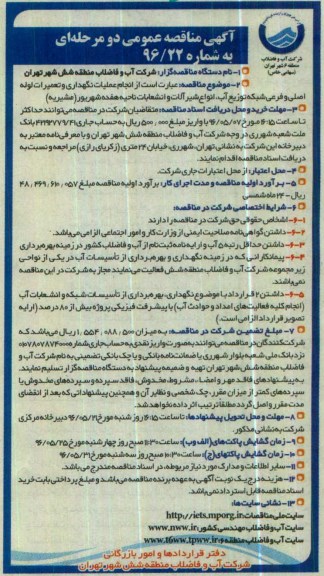 آگهی مناقصه عمومی دو مرحله‌ای
به شماره ۹۶/۲۲
شرکت آب و فاضلاب
منطقه ۶ شهر تهران
(سهامی خاص)
۱- نام دستگاه مناقصه‌گزار: شرکت آب و فاضلاب منطقه شش شهر تهران
۲- موضوع مناقصه: عبارت است از انجام عملیات نگهداری و تعمیرات لوله
اصلی و فرعی شبکه توزیع آب، انواع شیرآلات و انشعابات ناحیه هفده شهرپور (مشیریه)
۳- مهلت خرید و محل دریافت اسناد مناقصه: متقاضیان شرکت در مناقصه می‌توانند حداکثر
تا ساعت ۱۶:۱۵ مورخ ۹۶/۰۵/۰۲ با واریز مبلغ ۵۰۰,۰۰۰ ریال به حساب جاری ۴۴۳۲۷۷۹/۴ بانک
ملت شعبه شهرری در وجه شرکت آب و فاضلاب منطقه شش شهر تهران و با معرفی‌نامه معتبر به
دبیرخانه این شرکت به نشانی تهران، شهرری، خیابان ۲۴ متری (زکریای رازی) مراجعه و نسبت به
دریافت اسناد مناقصه اقدام نمایند.
۴- محل اعتبار: از محل اعتبارات جاری شرکت.
۵- برآورد اولیه مناقصه و مدت اجرای کار: برآورد اولیه مناقصه مبلغ ۴۸,۴۶۹,۶۱۰,۰۵۷
ریال - ۲۴ ماه شمسی
۶- شرایط اختصاصی شرکت در مناقصه:
۶-۱- اشخاص حقوقی حق شرکت در مناقصه را دارند
۶-۲- داشتن گواهی‌نامه صلاحیت ایمنی از وزارت کار و امور اجتماعی الزامی می‌باشد.
۶-۳- داشتن حداقل رتبه ۵ آب و ارایه نامه ثبت‌نام از آب و فاضلاب کشور در زمینه بهره‌برداری
۶-۴- پیمانکارانی که در زمینه نگهداری و بهره‌برداری از تأسیسات آب در یکی از نواحی
زیر مجموعه شرکت آب و فاضلاب منطقه شش فعالیت می‌نمایند مجاز به شرکت در این مناقصه
نمی‌باشند.
۶-۵- داشتن ۲ قرارداد با موضوع نگهداری، بهره‌برداری از تأسیسات شبکه و انشعابات آب
(انجام کلیه فعالیت‌های امداد و حوادث آب) با پیشرفت فیزیکی پروژه بیش از ۸۰ درصد (ارایه
تصویر قرارداد الزامی است.)
۷- مبلغ تضمین شرکت در مناقصه: به میزان ۱,۵۵۴,۰۸۸,۵۰۰ ریال می‌باشد که
شرکت‌کنندگان در مناقصه می‌توانند به صورت واریز نقدی به حساب جاری شماره
نزد بانک ملی شعبه بلوار شهرری یا ضمانت‌نامه بانکی و یا چک بانکی تضمینی به نام شرکت آب و
فاضلاب منطقه شش شهر تهران تهیه و ضمیمه پیشنهاد به دستگاه مناقصه‌گزار تسلیم نمایند.
به پیشنهادهای فاقد مهر و امضاء، مشروط، مخدوش، فاقد سپرده و سپرده‌های مخدوش یا
سپرده‌های کمتر از میزان مقرر، چک شخصی و نظایر آن و همچنین پیشنهاداتی که بعد از انقضای
مدت مقرر واصل گردد مطلقا ترتیب اثر داده نخواهد شد
۸- مهلت و محل تحویل پیشنهادها: تا ساعت ۱۶:۱۵ روز شنبه مورخ ۹۶/۰۵/۲۱ دبیرخانه مرکزی
شرکت به نشانی مذکور.
۹- زمان گشایش پاکت‌های (الف و ب): ساعت ۱۱:۳۰ صبح روز چهارشنبه مورخ ۹۶/۰۵/۲۵
۱۰- زمان گشایش پاکت‌های (ج): ساعت ۱۰:۳۰ صبح روز سه‌شنبه مورخ ۹۶/۰۵/۳۱
۱۱- سایر اطلاعات و مدارک مورد نیاز مربوطه، در اسناد مناقصه مندرج می‌باشد.
۱۲- هزینه درج یک نوبت آگهی به عهده برنده مناقصه می‌باشد و مبلغ پرداختی بابت خرید
اسناد مناقصه قابل استرداد نمی‌باشد.
۱۳- نشانی سایت‌ها:
سایت ملی مناقصات: http://iets.mporg.ir
سایت آب و فاضلاب مهندسی کشور: www.nww.ir
سایت آب و فاضلاب منطقه ۶: www.t6ww.tpww.ir
دفتر قراردادها و امور بازرگانی
شرکت آب و فاضلاب منطقه شش شهر تهران